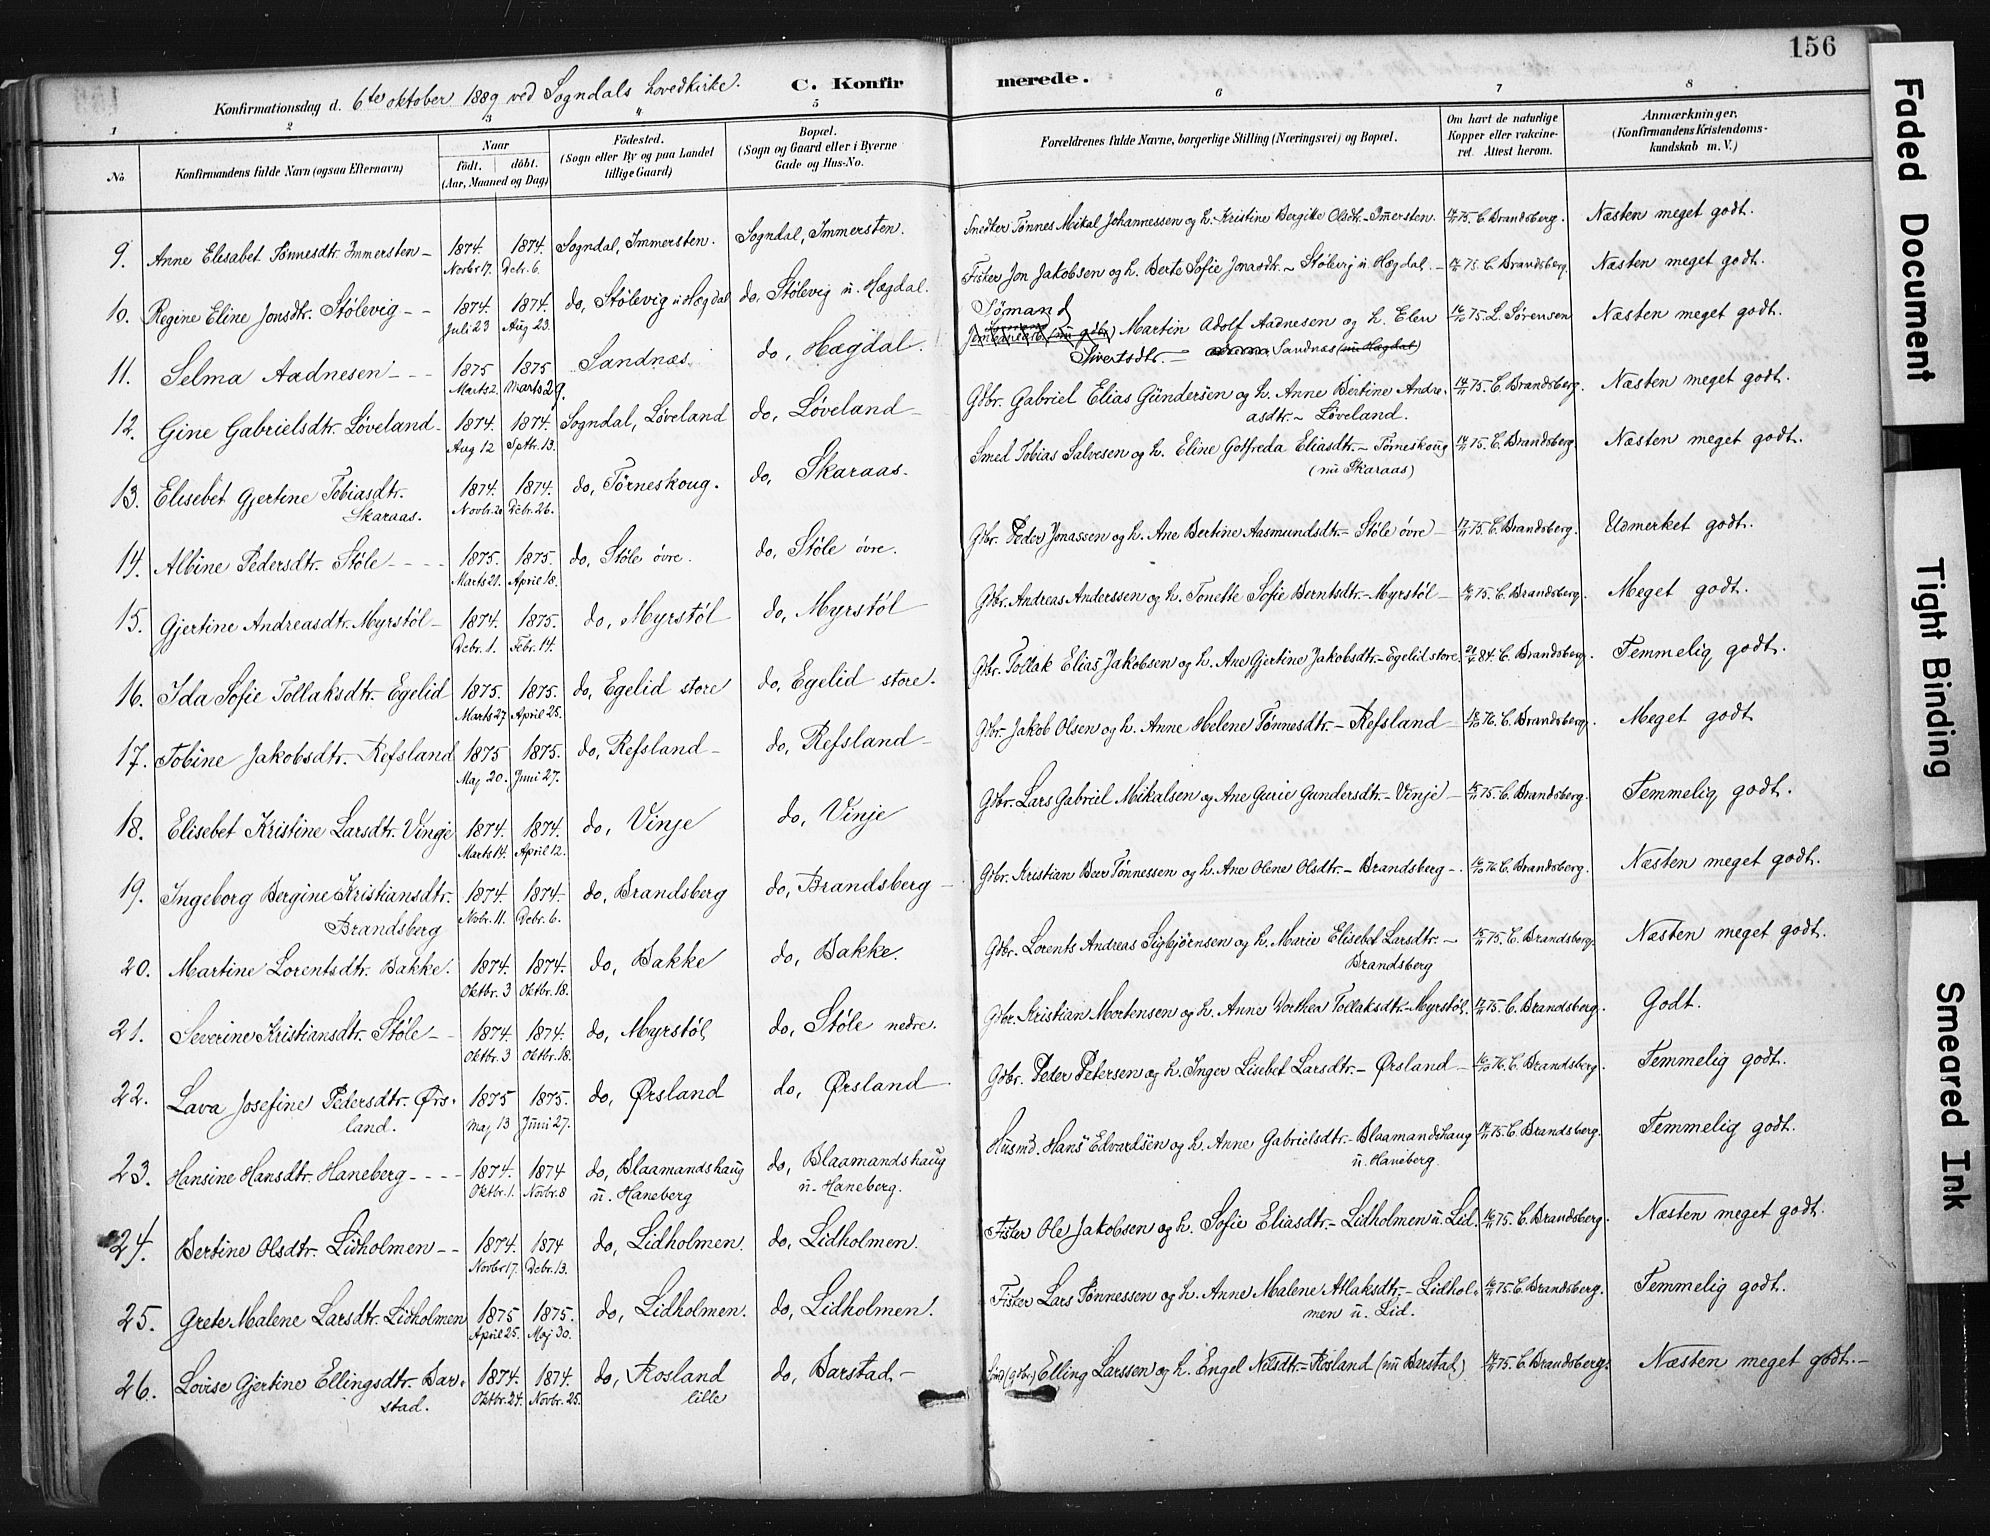 156
Konfirmationsdag d. 6te oktober 1889 ved Sogndals hovedkirke. C. Konfirmerede.
1 2 3 4 5 6 7 8
No
Konfirmandens fulde Navn (ogsaa Efternavn)
Naar
født. døbt.
(Aar, Maaned og Dag)
Fødested.
(Sogn eller By og paa Landet
tillige Gaard)
Bopæl.
(Sogn og Gaard eller i Byerne
Gade og Hus-No.
Forældrenes fulde Navne, borgerlige Stilling (Næringsvei) og Bopæl.
Om havt de naturlige
Kopper eller vakcine-
ret. Attest herom.
Anmærkninger.
(Konfirmandens Kristendoms-
kundskab m. V.)
9. Anne Elisabet Tønnesdtr. Immersten – 1874. Novbr 17. 1874. Dcbr. 6. Sogndal, Immersten. Sogndal, Immersten. Snedker Tønnes Mikal Johannessen og h. Kristine Bergitte Olsdtr. – Immersten. 75. C. Brandsberg. Næsten meget godt.
10. Regine Eline Jonsdtr. Stølevig – – 1874. Juli 23 1874. Aug 23. do, Stølevig u. Hægdal do, Stølevig u. Hægdal. Fisker Jon Jakobsen og h. Berte Sofie Jonasdtr. – Stølevig u. Hægdal. – 75. C. Brandsberg. Næsten meget godt.
11. Selma Aadnesen – – – 1875 Marts 2. 1875 Marts 29. Sandnæs. do, Hægdal. Sømand Martin Adolf Aadnesen og h. Elen
Sivertsdtr. – Sandnæs (nu Hægdal) 75. L. Sørensen Næsten meget godt.
12. Gine Gabrielsdtr. Løveland – 1874. Aug 12 1874. Sptr. 13. Sogndal, Løveland do, Løveland – Gbr. Gabriel Elias Gundersen og h. Anne Bertine Andre-
asdtr. – Løveland. 75. C. Brandsberg. Næsten meget godt.
13. Elisebet Gjertine Tobiasdtr.
Skaraas. 1874. Novbr. 20 1874. Dcbr. 26. do, Tørneskoug. do, Skaraas. Smed Tobias Salvesen og h. Eline Gotfreda Eliasdtr. – Tørneskoug
(nu Skaraas) 75. C. Brandsberg Næsten meget godt.
14. Albine Pedersdtr. Støle – – – – 1875. Marts 21. 1875. April 18. do, Støle øvre. do, Støle øvre. Gbr. Peder Jonassen og h. Ane Bertine Aasmundsdtr. – Støle øvre – 75. C. Brandsberg. Udmerket godt.
15. Gjertine Andreasdtr. Myrstøl – 1874. Dcbr. 1. 1875. Febr. 14. do, Myrstøl do, Myrstøl Gbr. Andreas Anderssen og h. Tonette Sofie Berntsdtr. – Myrstøl – 75. C. Brandsberg. Meget godt.
16. Ida Sofie Tollaksdtr. Egelid 1875. Marts 27 1875. April 25. do, Egelid store do, Egelid store. Gbr. Tollak Elias Jakobsen og h. Ane Gjertine Jakobsdtr. – Egelid store. 84. C. Brandsberg. Temmelig godt.
17. Tobine Jakobsdtr. Refsland 1875 Maj 20. 1875. Juni 27. do, Refsland – do, Refsland – Gbr. Jakob Olsen og h. Anne Helene Tønnesdtr. – Refsland – 76. C. Brandsberg. Meget godt
18. Elisebet Kristine Larsdtr. Vinge 1874. Marts 14. 1874. April 12. do, Vinje do, Vinje Gbr. Lars Gabriel Mikalsen og Ane Gurie Gundersdtr. – Vinje – 75. C. Brandsberg. Temmelig godt.
19. Ingeborg Bergine Kristiansdtr.
Brandsberg 1874. Novbr. 11. 1874. Dcbr. 6. do, Brandsberg do, Brandsberg – Gbr. Kristian Beer Tønnessen og h. Ane Olene Olsdtr. – Brandsberg – 76 C. Brandsberg. Næsten meget godt.
20. Martine Lorentsdtr. Bakke. 1874. Oktbr. 3 1874. Oktbr. 18. do, Bakke do, Bakke. Gbr. Lorents Andreas Sigbjørnsen og h. Marie Elisebet Larsdtr. –
Brandsberg 75. C. Brandsberg. Næsten meget godt.
21. Severine Kristiansdtr. Støle – – 1874. Oktbr. 3 1874. Oktbr. 18. do, Myrstøl do, Støle nedre. Gbr. Kristian Mortensen og h. Anne Dorthea Tollaksdtr. – Myrstøl. 75. C. Brandsberg. Godt.
22. Lava Josefine Pedersdtr. Ørs-
land. 1875 Maj 13 1875. Juni 27. do, Ørsland do, Ørsland – Gbr. Peder Petersen og h. Inger Lisebet Larsdtr. – Ørsland – 76. C. Brandsberg. Temmelig godt.
23. Hansine Hansdtr. Haneberg – – – – 1874. Oktbr. 1. 1874 Novbr. 8 do, Blaamandshaug
u. Haneberg do, Blaamandshaug
u. Haneberg. Husmd. Hans Edvardsen og h. Anne Gabrielsdtr. – Blaamandshaug
u. Haneberg. 75. C. Brandsberg. Temmelig godt.
24. Bertine Olsdtr. Lidholmen – – 1874. Novbr 17. 1874 Dcbr. 13. do, Lidholmen. do, Lidholmen. Fisker Ole Jakobsen og h. Sofie Eliasdtr. – Lidholmen u. Lid. 75. C. Brandsberg. Næsten meget godt.
25. Grete Malene Larsdtr. Lidholmen 1875 April 25. 1875. Maj 30. do, Lidholmen. do, Lidholmen. Fisker Lars Tønnessen og h. Anne Malene Atlaksdtr. – Lidhol-
men u. Lid. 75. C. Brandsberg. Temmelig godt.
26. Lovise Gjertine Ellingsdtr. Bar-
stad. 1874. Oktbr. 24. 1874. Novbr. 25. do, Rosland
lille do, Barstad. – (gbr.) Elling Larssen og h. Engel Nilsdtr. – Rosland (nu Barstad) 75. C. Brandsberg. Næsten meget godt. –
Faded Document
Tight Binding
Smeared Ink